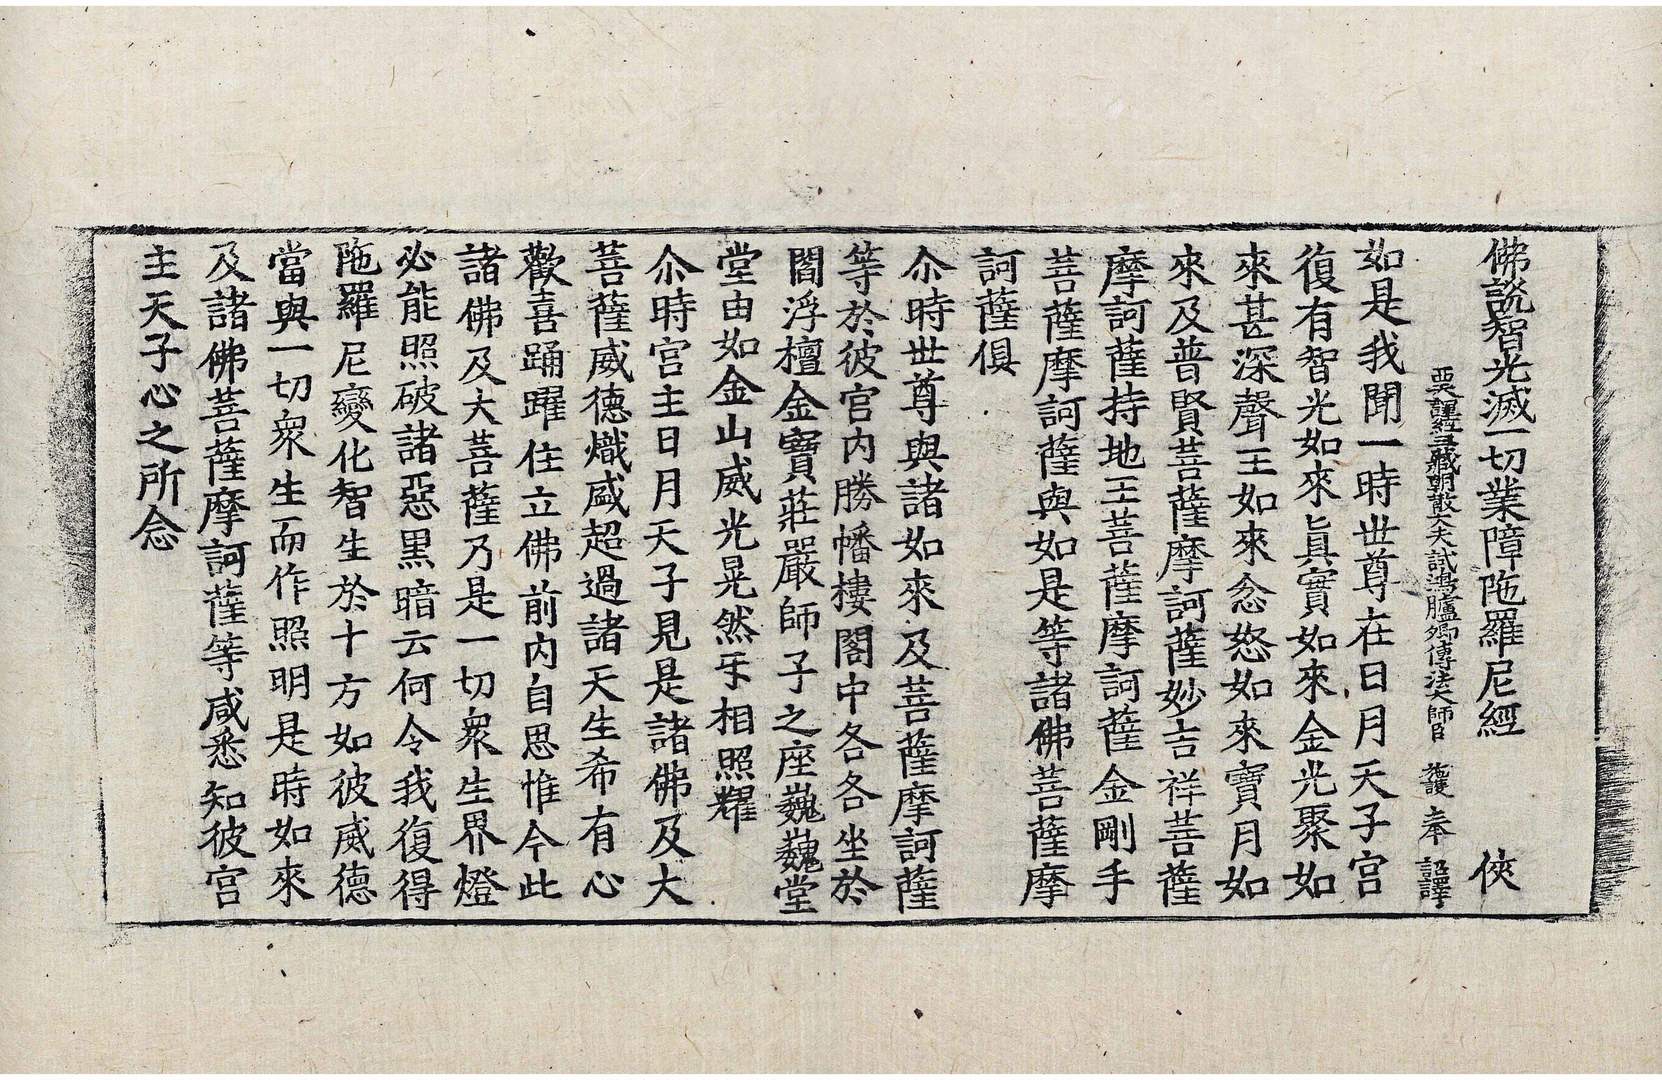 佛說智光滅一切業障陁羅尼經 俠
西天譯經三藏朝散大夫試鴻臚卿傳法大師臣 施護 奉 詔譯
如是我聞一時世尊在日月天子宮
復有智光如來眞實如來金光聚如
來甚深聲王如來忿怒如來寶月如
來及普賢菩薩摩訶薩妙吉祥菩薩
摩訶薩持地王菩薩摩訶薩金剛手
菩薩摩訶薩與如是等諸佛菩薩摩
訶薩俱
尒時世尊與諸如來及菩薩摩訶薩
等於彼宮內勝幡樓閣中各各坐於
閻浮檀金寶莊嚴師子之座巍巍堂
堂由如金山威光晃然牙相照耀
尒時宮主日月天子見是諸佛及大
菩薩威德熾盛超過諸天生希有心
歡喜踊躍住立佛前內自思惟今此
諸佛及大菩薩乃是一切衆生界燈
必能照破諸惡黑暗云何令我復得
陁羅尼變化智生於十方如彼威德
當與一切衆生而作照明是時如來
及諸佛菩薩摩訶薩等咸悉知彼宮
主天子心之所念